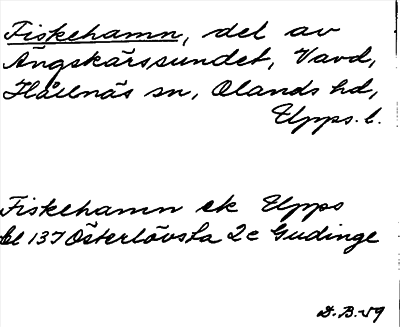 Fiskehamn, del av
Ängskärssundet, Vavd,
Hållnäs sn, Olands hd,
Upps. l.
Fiskehamn ek Upps
bl 137 Österlövsta 2c Gudinge
D.B.-59